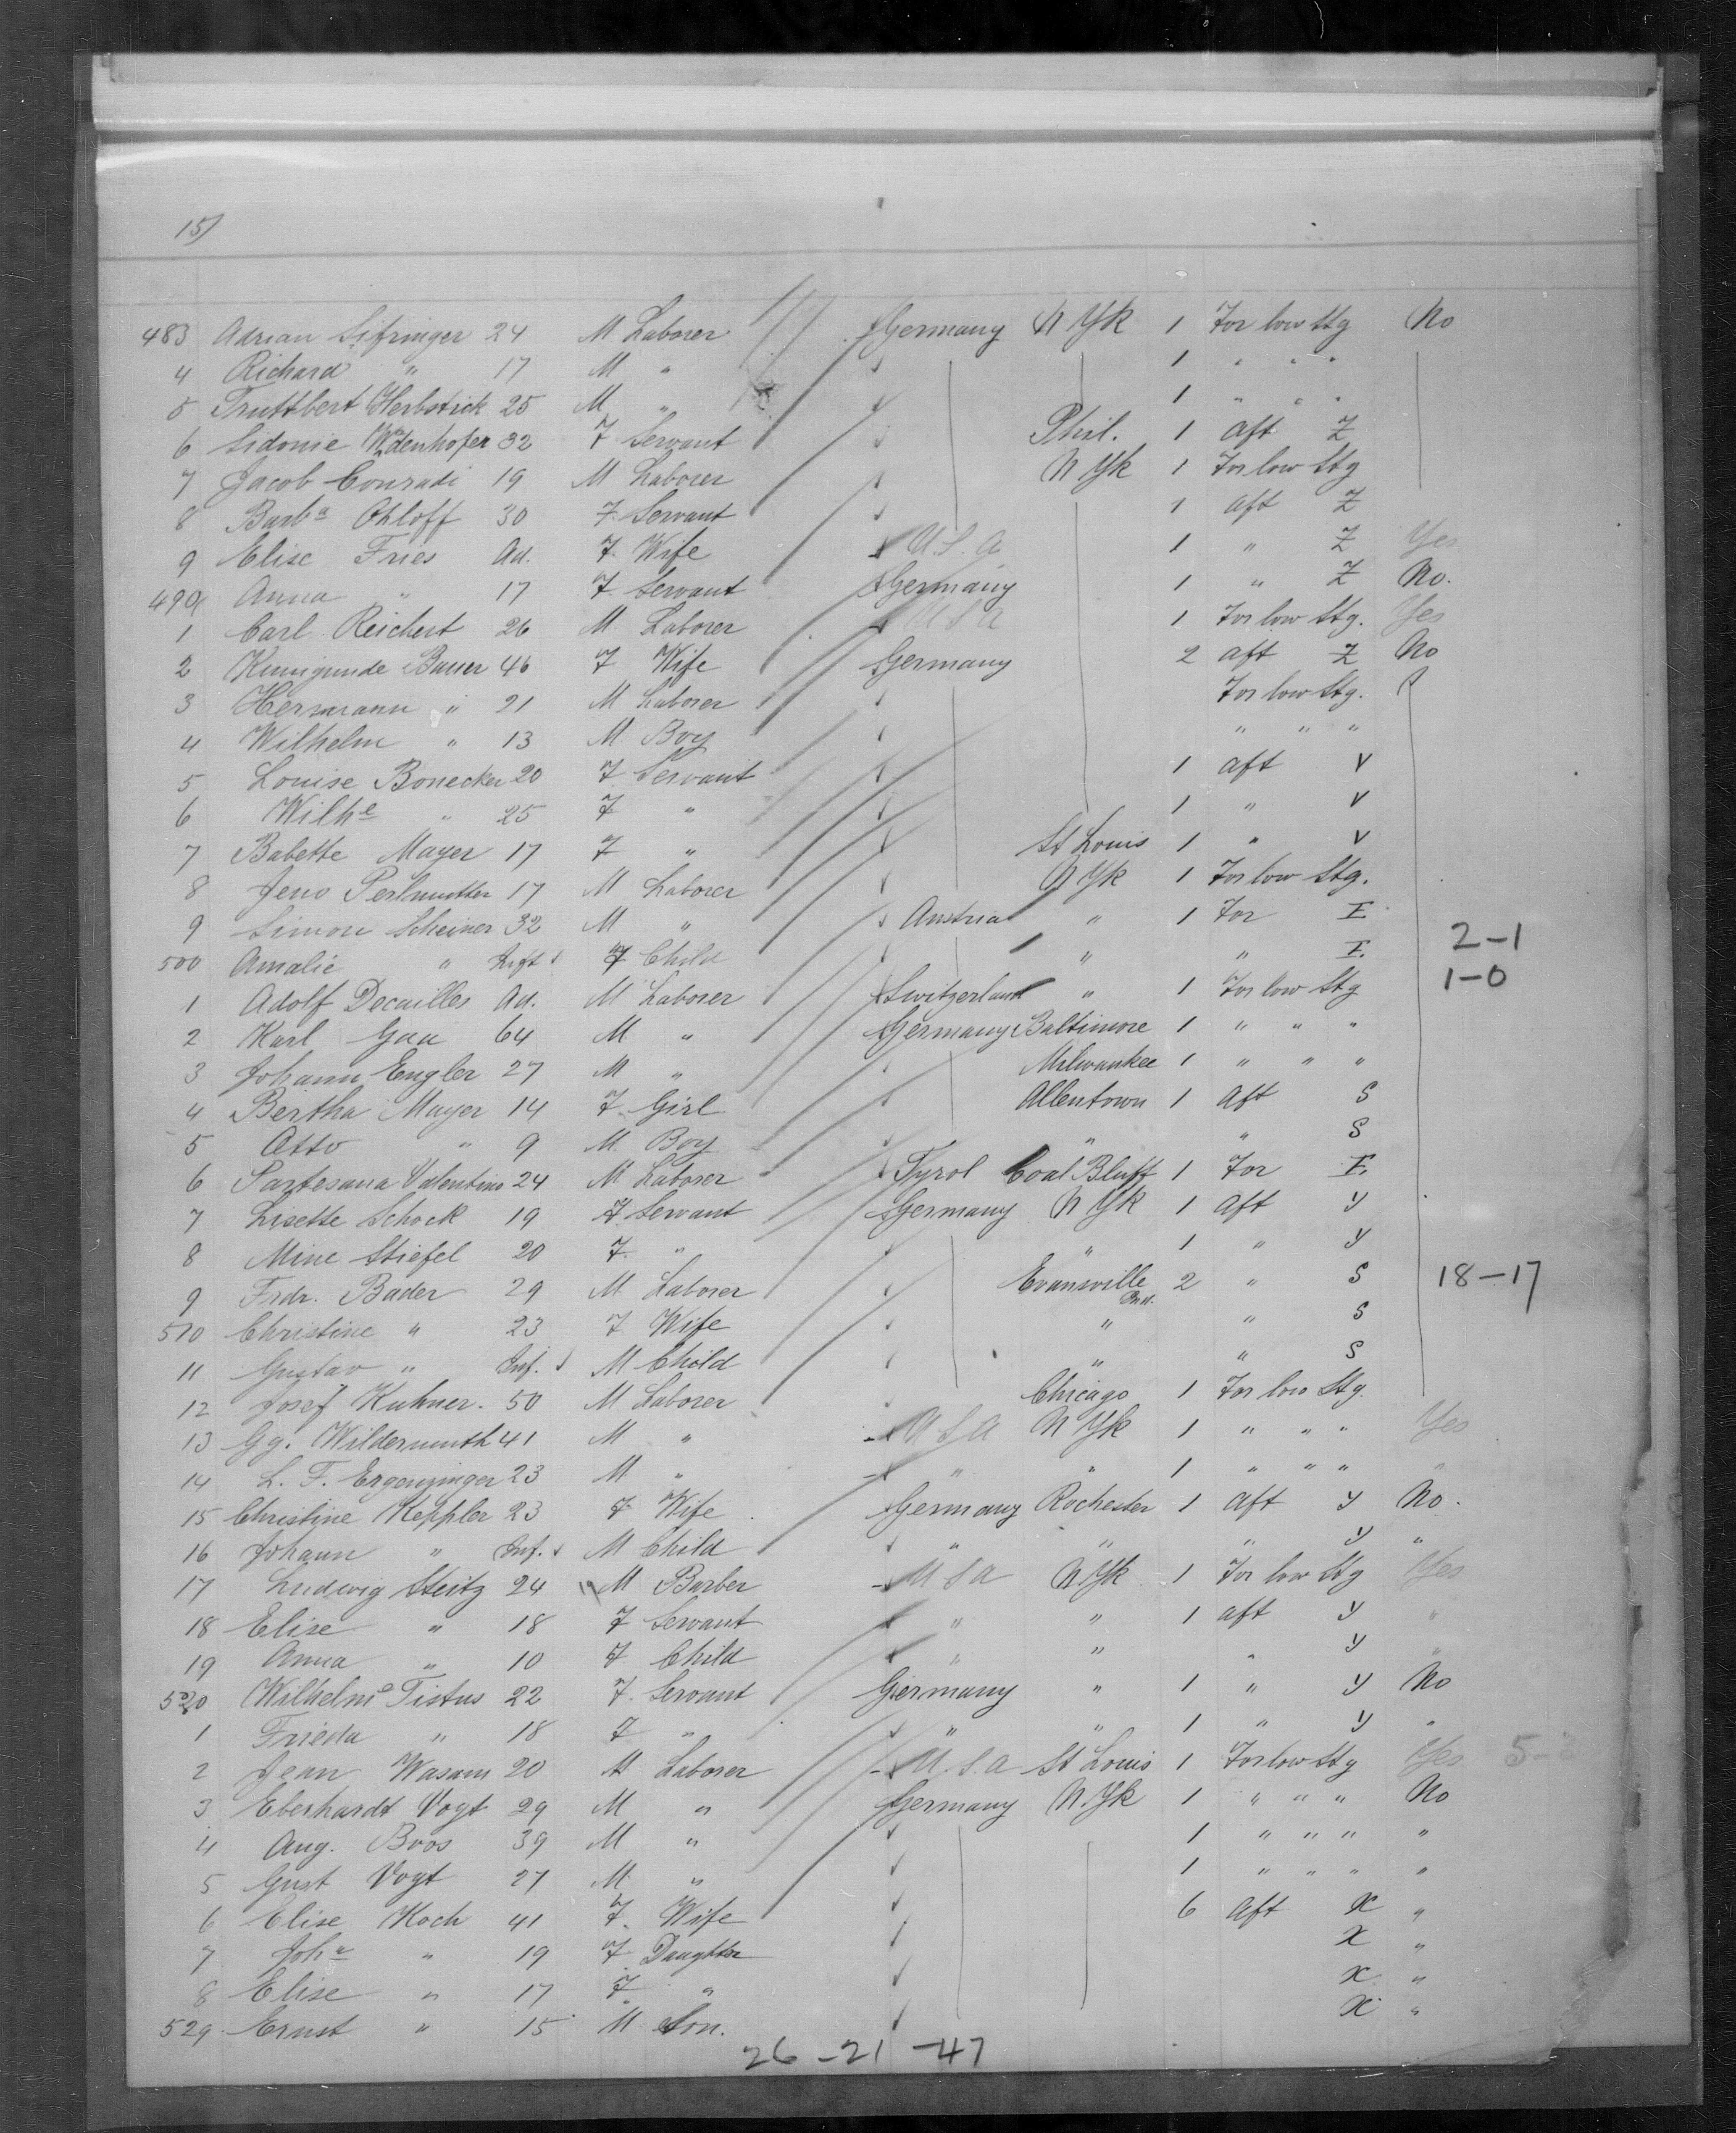 15/
483 Adrian Sifringer 24 M Laborer Germany N Yk 1 For low Stg No
4 Richard " 17 M " 1 " " "
5 Truttbert Herbstrick 25 M " 1 " " "
6 Sidonie 32 F Servant Phil. 1 aft Z
7 Jacob Conradi 19 M Laborer N Yk 1 For low Stg
8 Barba Ohloff 30 F. Servant 1 aft Z
9 Elise Fries Ad. F. Wife U.S.A 1 " Z Yes
490 Anna " 17 F. Servant Germany 1 " Z No.
1 Carl Reichert 26 M Laborer U S A 1 For low Stg. Yes
2 Kunigunde Bauer 46 F Wife Germany 2 aft Z No
3 Hermann " 21 M Laborer For low Stg.
4 Wilhelm " 13 M. Boy " " "
5 Louise Bonecker 20 F Servant 1 aft V
6 Wilhe " 25 F " 1 " V
7 Babette Mayer 17 F " St Louis 1 " V
8 Jeno Perlmutter 17 M Laborer N Yk 1 For low Stg.
9 Simon Scheiner 32 M " Austria " 1 For E
2-1
500 Amalie " Inft F Child " " E.
1-0
1 Adolf Decailles Ad. M Laborer Switzerland " 1 For low Stg
2 Karl Gaa 64 M " Germany Baltimore 1 " " "
3 Johann Engler 27 M " Milwaukee 1 " " "
4 Bertha Mayer 14 F. Girl Allentown 1 Aft S
5 Otto " 9 M Boy " " S
6 Partesana Valentino 24 M Laborer Tyrol Coal Bluff 1 For E.
7 Lisette Schock 19 F Servant Germany N Yk 1 aft Y
8 Mine Stiefel 20 F. " " 1 " Y
9 Frdr. Bader 29 M Laborer Evansville Ind. 2 " S
18-17
510 Christine " 23 F Wife " " S
11 Gustav " Inf. M Child " " S
12 Josef Kuhner. 50 M Laborer Chicago 1 For low Stg.
13 Gg. Wildermuth 41 M " U S A N Yk 1 " " " Yes
14 L. F. Ergenzinger 23 M " " " 1 " " " "
15 Christine Keppler 23 F Wife Germany Rochester 1 aft Y No.
16 Johann " Inf. M Child " " " Y "
17 Ludwig Steitz 24 M Barber U S A N. Yk 1 For low Stg Yes
18 Elise " 18 F Servant " " 1 aft Y "
19 Anna " 10 F Child " " " Y "
520 Wilhelme Tistus 22 F. Servant Germany " 1 " Y No
1 Frieda " 18 F " " " 1 " Y "
2 Jean Wasam 20 M Laborer U.S.A St Louis 1 For low Stg Yes
3 Eberhardt Vogt 29 M " Germany N. Yk 1 " " " No
4 Aug. Boos 39 M " 1 " " " "
5 Gust Vogt 27 M " 1 " " " "
6 Elise Koch 41 F. Wife 6 aft X "
7 Joha " 19 F. Daughter X "
8 Elise " 17 F " X "
529 Ernst " 15 M Son. X "
26-21-47